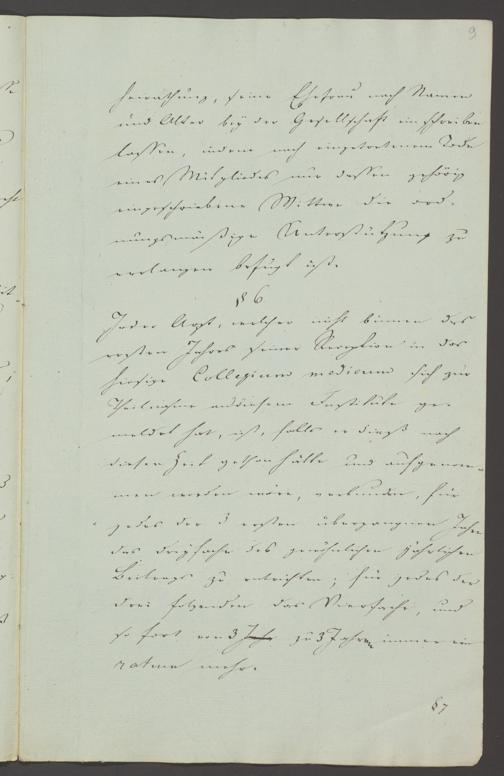 9
heirathung, seine Ehefrau nach Namen
und Alter bey der Gesellschaft einschreiben
lassen, indem nach eingetretenem Tode
eines Mitgliedes nur dessen gehörig
eingeschriebene Wittwe die ord-
nungsmäßige Unterstützung zu
verlangen befugt ist.
§ 6
Jeder Arzt, welcher nicht binnen des
ersten Jahres seiner Reception in das
hiesige Collegium medicum sich zur
Theilnahme an diesem Institute ge-
meldet hat, ist, falls er dieß nach
dieser Zeit gethan hätte und aufgenom-
men worden wäre, verbunden, für
jedes der 3 ersten übergangnen Jahre
das dreyfache des gewöhnlichen jährlichen
Beitrags zu entrichten; für jedes der
drei folgenden das Vierfache, und
so fort von 3 zu 3 Jahren immer ein
mehr.
§ 7